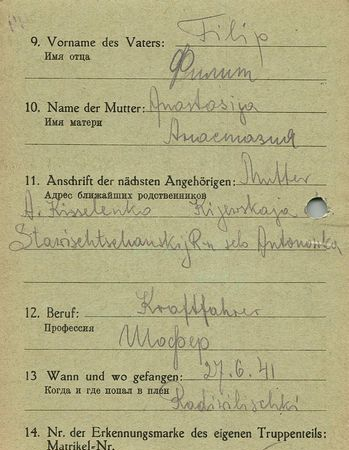 9. Vorname des Vaters: Filip
Имя отца
Филип
10. Name der Mutter: Anastasiya
Имя матери
Анастазия
11. Anschrift der nächsten Angehörigen: Mutter
Адрес ближайших родственников
A. Kisselenko Kijewskaja
Stawischtschanskij R-n selo Antonowka
12. Beruf: Kraftfahrer
Профессия
Шофер
13 Wann und wo gefangen: 27.6.41
Когда и где попал в плен
Radiwilischki
14. Nr. der Erkennungsmarke des eigenen Truppenteils:
Matrikel-Nr.